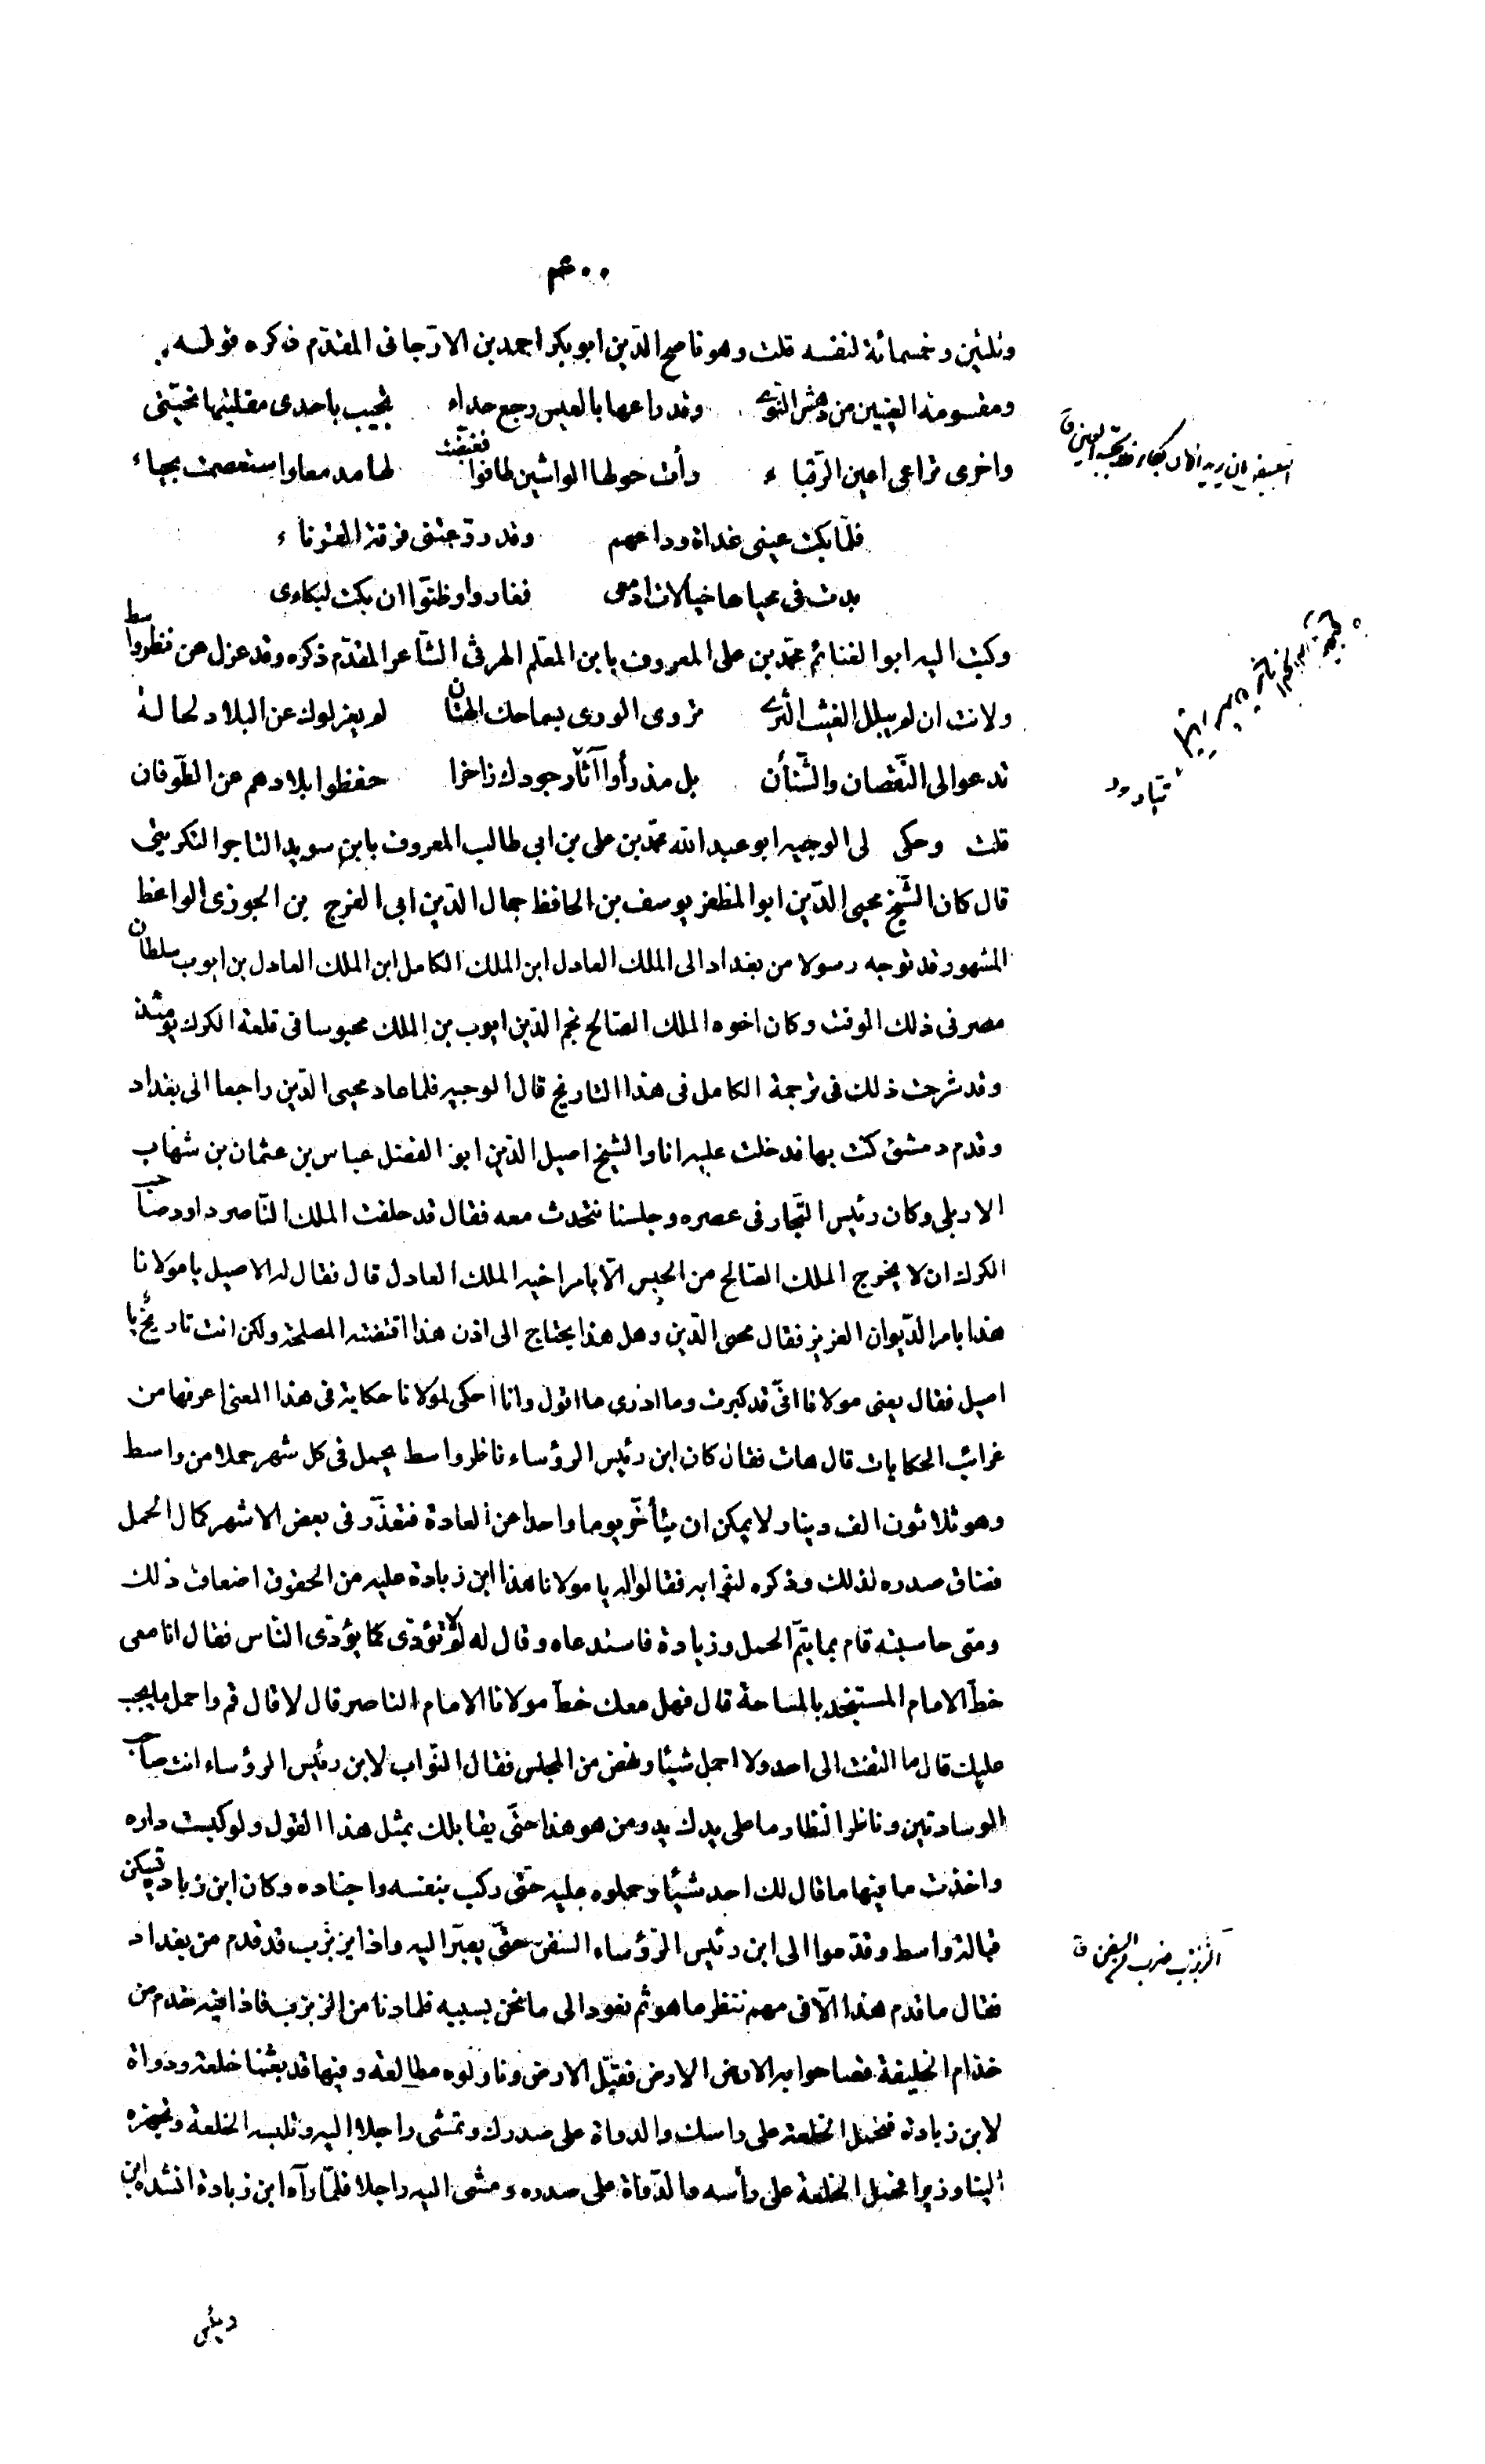 وثلثين وخمسمائة لنفسه قلت وهو ناصح الدّين ابو بكر احمد بن الارّجانى المقدّم ذكره قوله
ومقسومة العينين من دهش النّوى وقد راعها بالعيس رجع حداء تجيب باحدى مقلتيها تحيّتى
واخرى تراعى اعين الرّقباء رأت حولها الواشين طافوا فغيّضت لها مدمعا واستعصمت بحياء
فلمّا بكت عينى غداة وداعهم وقد روّعتنى فرقة القرناء
بدت فى محياها خيالات ادمعى فغاروا وظنّوا ان بكت لبكاءى
وكتب اليه ابو الغنائم محمّد بن على المعروف بابن المعلّم الهرثى الشّاعر المقدّم ذكره وقد عزل عن نظر واسط
ولانت ان لم يبلل الغيث الثرى تروى الورى بسماحك الهتان لم يعزلوك عن البلاد لحالة
تدعو الى النّقصان والشّنأن بل مذ رأوا آثار جودك زاخرا حفظوا بلادهم عن الطّوفان
قلت وحكى لى الوجيه ابو عبد الله محمّد بن على بن ابى طالب المعروف بابن سويد التاجر التكريتى
قال كان الشّيخ محيى الدّين ابو المظفر يوسف بن الحافظ جمال الدّين ابى الفرج بن الجوزى الواعظ
المشهور قد توجه رسولا من بغداد الى الملك العادل ابن الملك الكامل ابن الملك العادل بن ايوب سلطان
مصر فى ذلك الوقت وكان اخوه الملك الصّالح نجم الدّين ايوب بن الملك محبوسا فى قلعة الكرك يومئذ
وقد شرحت ذلك فى ترجمة الكامل فى هذا التاريخ قال الوجيه فلما عاد محيى الدّين راجعا الى بغداد
وقدم دمشق كنت بها فدخلت عليه انا والشيخ اصيل الدّين ابو الفضل عباس بن عثمان بن شهاب
الاربلى وكان رئيس التّجار فى عصره وجلسنا نتحدث معه فقال قد حلفت الملك النّاصر داود صاحب
الكرك ان لا يخرج الملك الصّالح من الحبس الّا بامر اخيه الملك العادل قال فقال له الاصيل يا مولانا
هذا بامر الدّيوان العزيز فقال محى الدّين وهل هذا يحتاج الى اذن هذا اقتضته المصلحة ولكن انت تاريخ يا
اصيل فقال يعنى مولانا انّى قد كبرت وما ادرى ما اقول وانا احكى لمولانا حكاية فى هذا المعنى اعرفها من
غرائب الحكايات قال هات فقال كان ابن رئيس الرؤساء ناظر واسط يحمل فى كل شهر حملا من واسط
وهو ثلاثون الف دينار ولا يمكن ان يتأخّر يوما واحدا عن العادة فتعذّر فى بعض الاشهر كمال الحمل
فضاق صدره لذلك وذكره لنوابه فقالوا له يا مولانا هذا ابن زيادة عليه من الحقوق اضعاف ذلك
ومتى حاسبته قام بما يتمّ الحمل وزيادة فاستدعاه وقال له لم لا تؤدّى كما يؤدّى النّاس فقال انا معى
خطّ الامام المستنجد بالمسامحة قال فهل معك خطّ مولانا الامام الناصر قال لا قال قم واحمل ما يجب
عليك قال ما التفت الى احد ولا احمل شيئا ونهض من المجلس فقال النّواب لابن رئيس الرؤساء انت صاحب
الوسادتين وناظر النظار وما على يدك يد ومن هو هذا حتّى يقابلك بمثل هذا القول ولو كبست داره
واخذت ما فيها ما قال لك احد شيئا وحملوه عليه حتّى ركب بنفسه واجناده وكان ابن زيادة يسكن
قبالة واسط وقدّموا الى ابن رئيس الرّؤساء السفن حتّى يعبر اليه واذا بزبزب قد قدم من بغداد
فقال ما قدم هذا الّا فى مهم ننتظر ما هو ثم نعود الى ما نحن بسببه فلما دنا من الزبزب فاذا فيه خدم من
خدّام الخليفة فصاحوا به الارض الارض فقبّل الارض وناولوه مطالعة وفيها قد بعثنا خلعة ودواة
لابن زيادة فتحمل الخلعة على راسك والدواة على صدرك وتمشى راجلا اليه وتلبسه الخلعة وتجهزه
الينا وزيرا فحمل الخلعة على رأسه والدّواة على صدره ومشى اليه راجلا فلمّا رآه ابن زيادة انشده ابن
رئيس
الزبزب ضرب من السفن ق